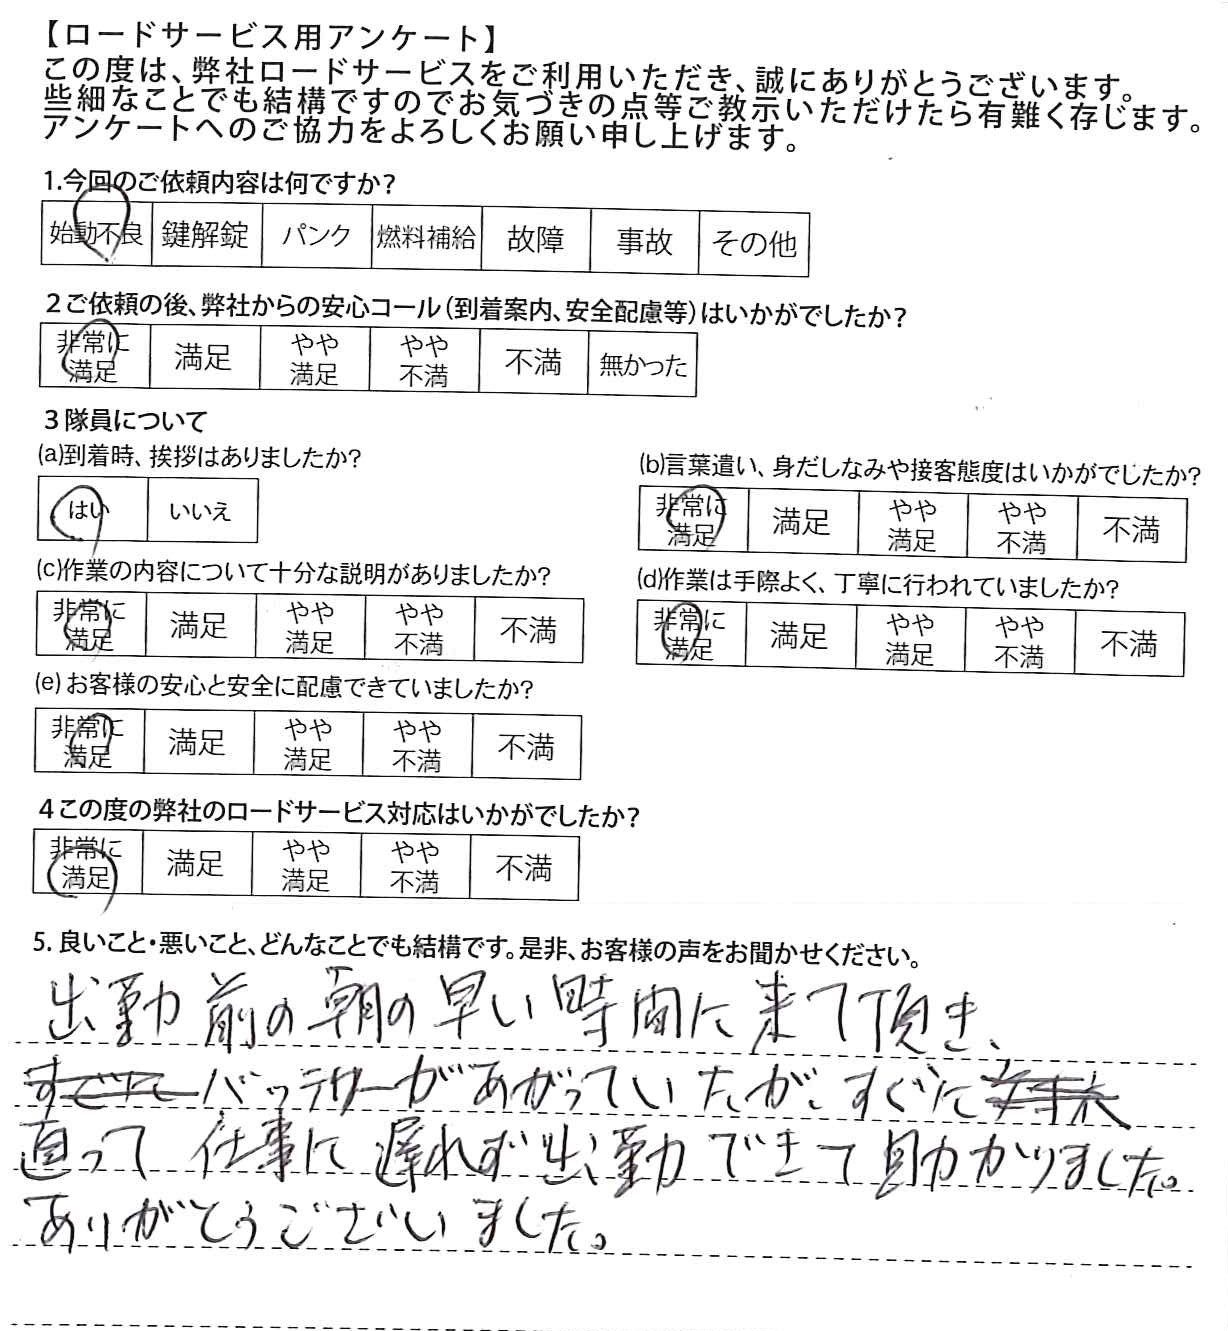 【ロードサービス用アンケート】
この度は、弊社ロードサービスをご利用いただき、誠にありがとうございます。
些細なことでも結構ですのでお気づきの点等ご教示いただけたら有難く存じます。
アンケートへのご協力をよろしくお願い申し上げます。
1.今回のご依頼内容は何ですか？
始動不良 鍵解錠 パンク 燃料補給 故障 事故 その他
2ご依頼の後、弊社からの安心コール（到着案内、安全配慮等）はいかがでしたか？
非常に満足 満足 やや満足 やや不満 不満 無かった
3隊員について
(a)到着時、挨拶はありましたか？
はい いいえ
(b)言葉遣い、身だしなみや接客態度はいかがでしたか？
非常に満足 満足 やや満足 やや不満 不満
(c)作業の内容について十分な説明がありましたか？
非常に満足 満足 やや満足 やや不満 不満
(d)作業は手際よく、丁寧に行われていましたか？
非常に満足 満足 やや満足 やや不満 不満
(e)お客様の安心と安全に配慮できていましたか？
非常に満足 満足 やや満足 やや不満 不満
4この度の弊社のロードサービス対応はいかがでしたか？
非常に満足 満足 やや満足 やや不満 不満
5. 良いこと・悪いこと、どんなことでも結構です。是非、お客様の声をお聞かせください。
出勤前の朝の早い時間に来て頂き、
すぐに バッテリーがあがっていたが、すぐに
直って 仕事に遅れず出勤できて助かりました。
ありがとうございました。